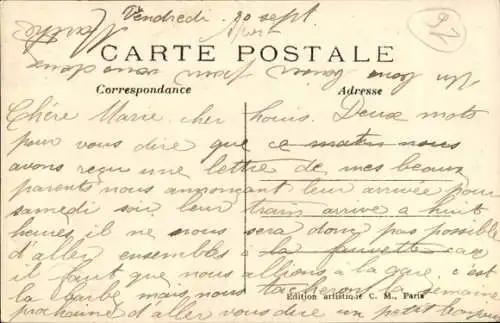 Vendredi 20 sept
CARTE POSTALE
Un bon baiser pour vous deux
Correspondance
Adresse
Chère Marie cher Louis. Deux mots
pour vous dire que ce matin nous
avons reçu une lettre de mes beaux
parents nous annonçant leur arrivée pour
samedi soir leur train arrive a huit
heures, il ne nous sera donc pas possible
d'aller ensembles à la fauvette car
il faut que nous allions a la gare, c'est
la barbe mais nous tacherons la semaine
prochaine d'aller vous dire un petit bonjour
Edition artistique C. M., Paris